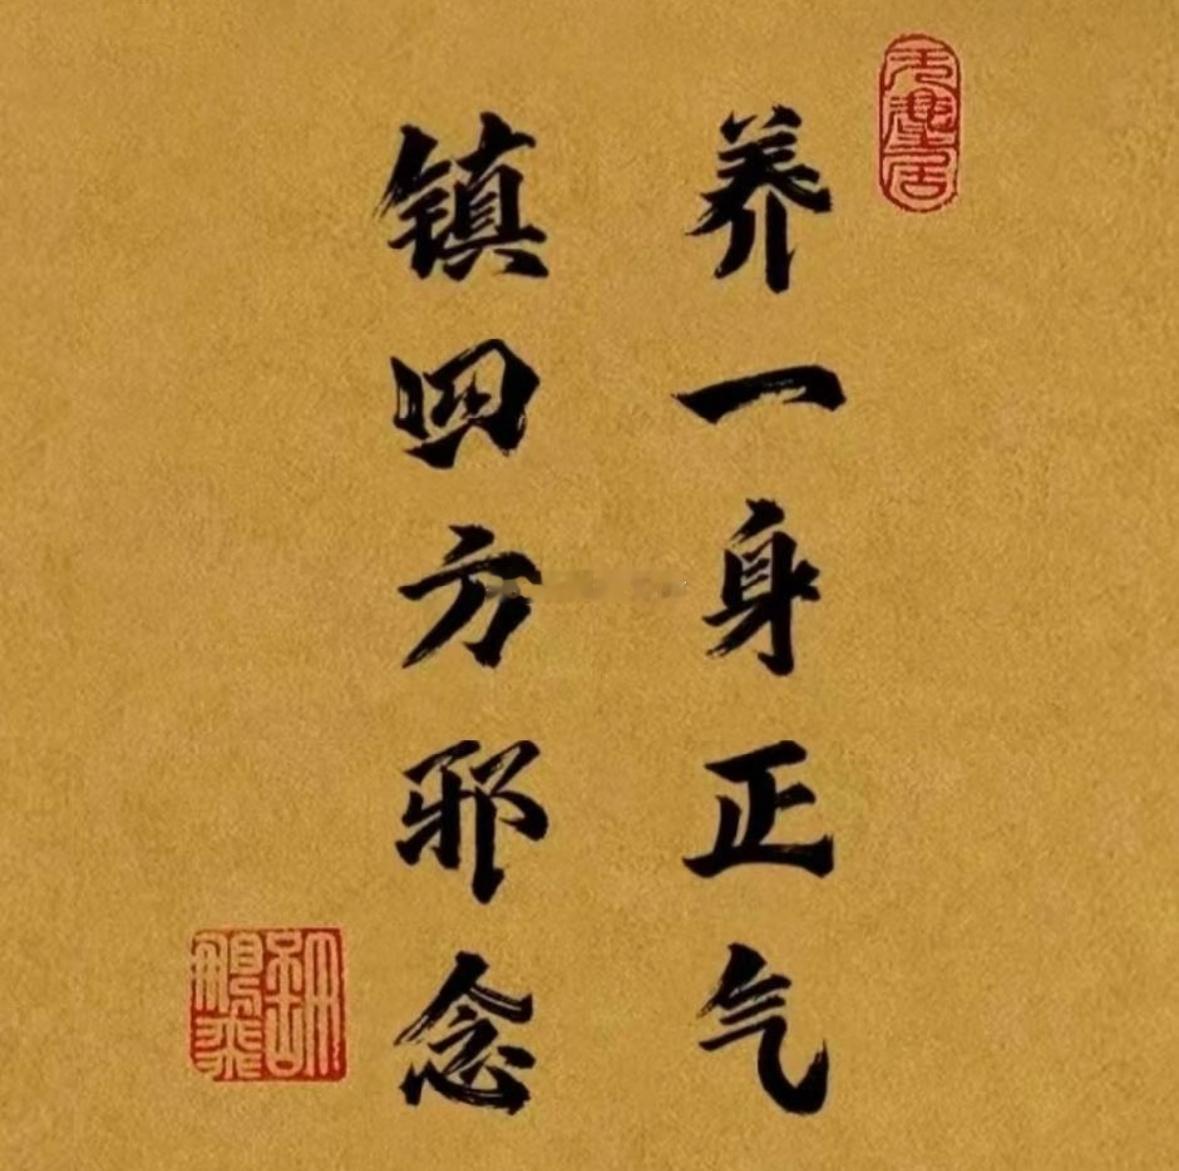 养一身正气
镇四方邪念